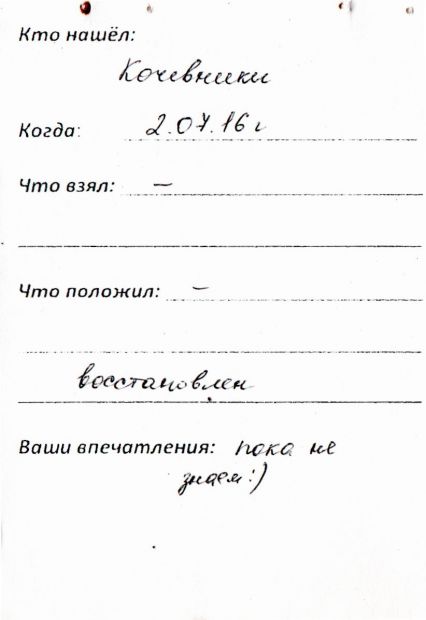 Кто нашёл:
Кочевники
Когда: 2.07.16 г
Что взял: –
Что положил: –
восстановлен
Ваши впечатления: пока не
знаем:)